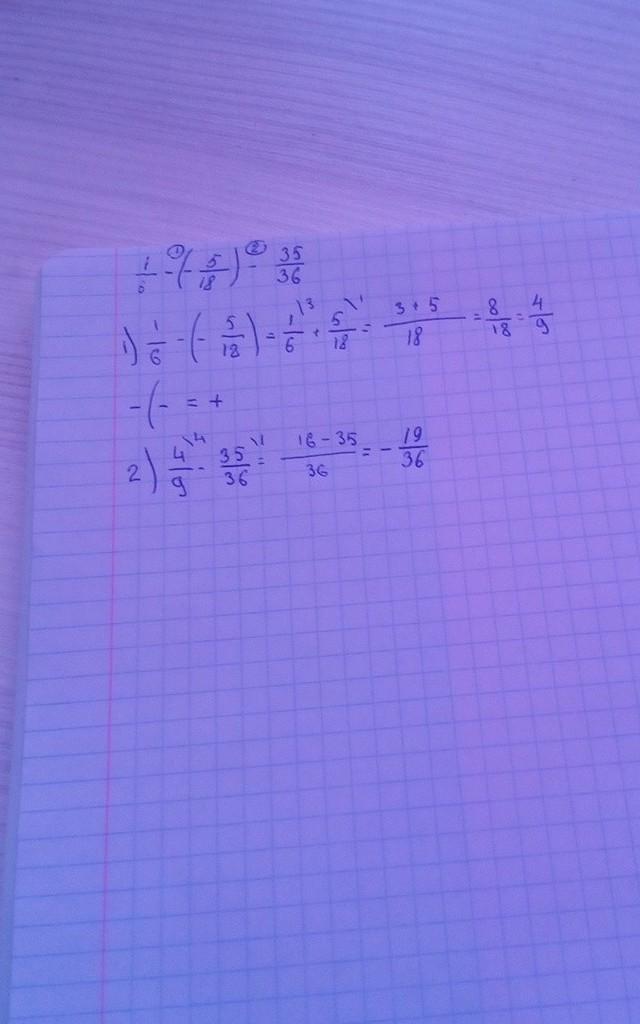 1/6 -① (- 5/18) -② 35/36
1) 1/6 - (- 5/18) = 1/6 \3 + 5/18 \1 = 3 + 5/18 = 8/18 = 4/9
- (- = +
2) 4/9 \4 - 35/36 \1 = 16 - 35/36 = - 19/36